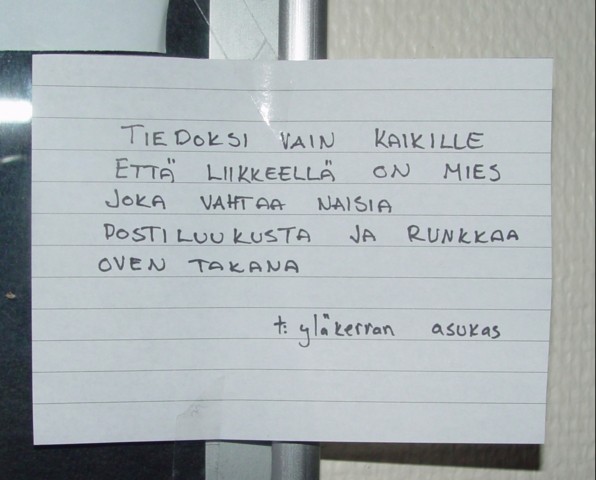 TIEDOKSI VAIN KAIKILLE
ETTÄ LIIKKEELLÄ ON MIES
JOKA VAHTAA NAISIA
POSTILUUKUSTA JA RUNKKAA
OVEN TAKANA
t: yläkerran asukas